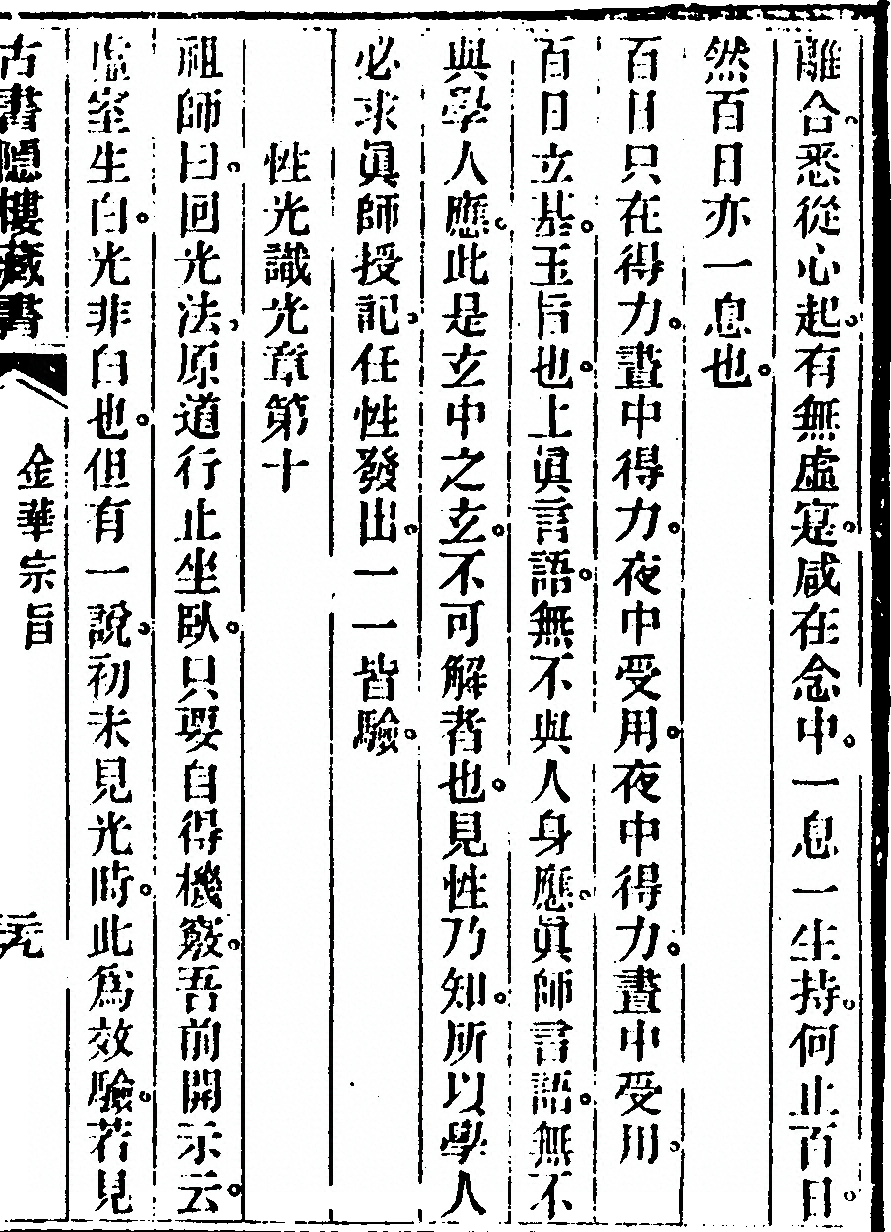 離合。悉從心起。有無虛寔。咸在念中。一息一生持。何止百日。
然百日亦一息也。
百日只在得力。晝中得力。夜中受用。夜中得力。晝中受用。
百日立基。玉旨也。上眞言語。無不與人身應。眞師言語。無不
與學人應。此是玄中之玄。不可解者也。見性乃知。所以學人
必求眞師授記。任性發出。一一皆驗。
性光識光章第十
祖師曰。回光法。原通行止坐臥。只要自得機竅。吾前開示云。
虛室生白。光非白也。但有一說。初未見光時。此爲效驗。若見
古書隱樓藏書
金華宗旨